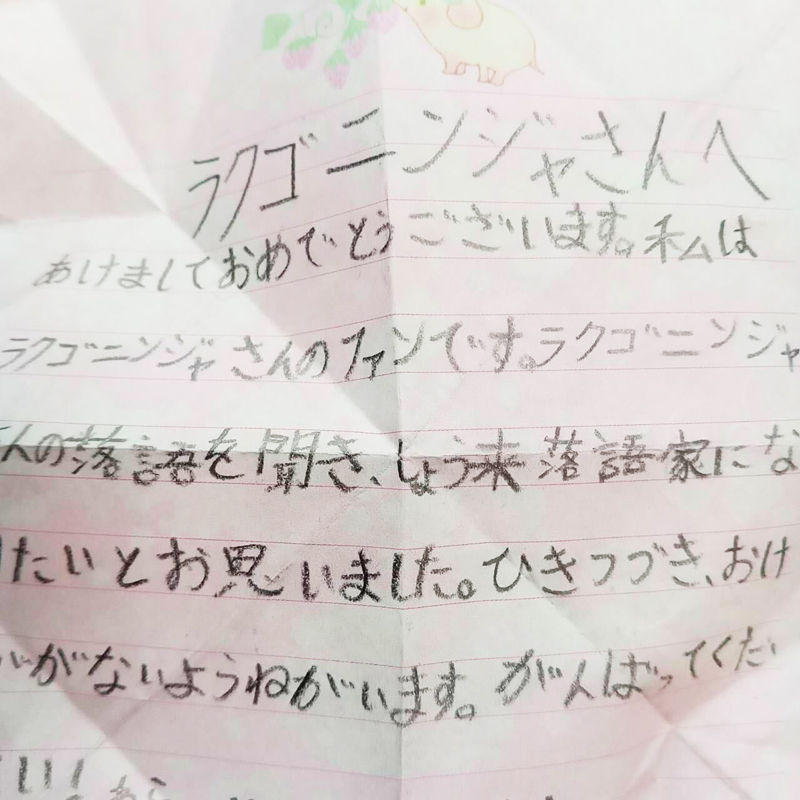 ラクゴニンジャさんへ
あけましておめでとうございます。私は
ラクゴニンジャさんのファンです。ラクゴニンジャ
んの落語を聞き、しょう来落語家にな
りたいとお思いました。ひきつづき、おけ
がないようねがいます。がんばってくだ
い!